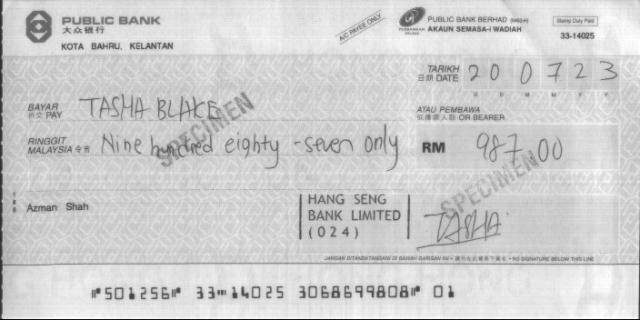 PUBLIC BANK
大众银行
KOTA BAHRU, KELANTAN
A/C PAYEE ONLY
PUBLIC BANK BERHAD
AKAUN SEMASA-i WADIAH
Stamp Duty Paid
33-14025
TARIKH
日期 DATE 20 07 23
D D M M Y Y
BAYAR
PAY TASHA BLAKE
ATAU PEMBAWA
OR BEARER
RINGGIT
MALAYSIA Nine hundred eighty -seven only
RM 987.00
SPECIMEN
SPECIMEN
Azman Shah
HANG SENG
BANK LIMITED
(024)
TASHA
JANGAN DITANDATANGANI DI BAWAH GARISAN INI • NO SIGNATURE BELOW THIS LINE
⑈501256⑈ 33⑉14025 3068699808⑈ 01